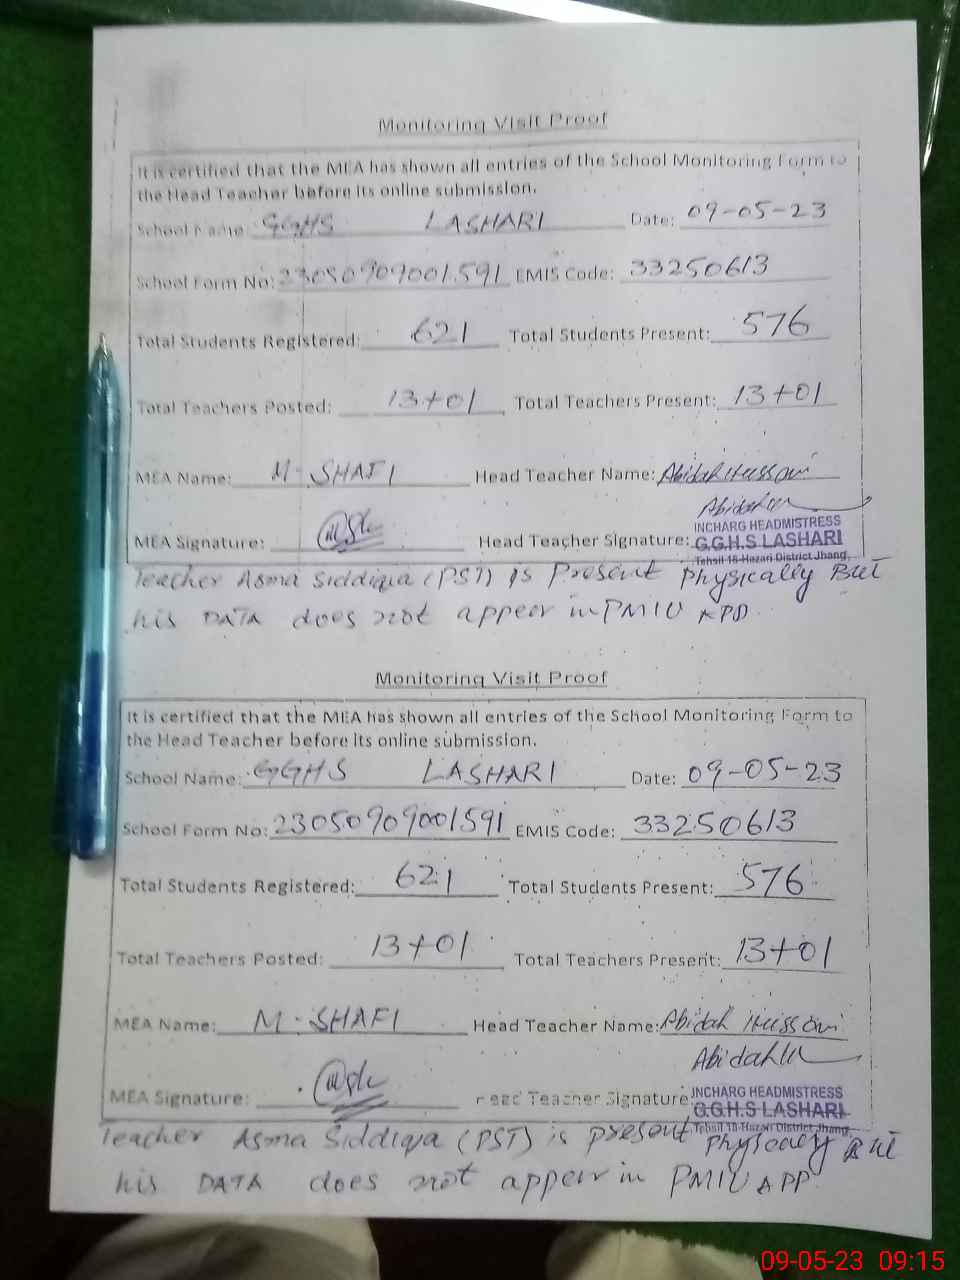 Monitoring Visit Proof
It is certified that the MEA has shown all entries of the School Monitoring Form to
the Head Teacher before its online submission.
School Name: GGHS LASHARI Date: 09-05-23
School Form No: 23050909001591 EMIS Code: 33250613
Total Students Registered: 621 Total Students Present: 576
Total Teachers Posted: 13+01 Total Teachers Present: 13+01
MEA Name: M-SHAFI Head Teacher Name: Abidah
MEA Signature: Head Teacher Signature: Abidah
INCHARG HEADMISTRESS
G.G.H.S LASHARI
Tehsil 18-Hazari District Jhang
Teacher Asma Siddiqa (PST) is Present Physically But
his DATA does not appear in PMIU APP
Monitoring Visit Proof
It is certified that the MEA has shown all entries of the School Monitoring Form to
the Head Teacher before its online submission.
School Name: GGHS LASHARI Date: 09-05-23
School Form No: 23050909001591 EMIS Code: 33250613
Total Students Registered: 621 Total Students Present: 576
Total Teachers Posted: 13+01 Total Teachers Present: 13+01
MEA Name: M-SHAFI Head Teacher Name: Abidah
MEA Signature: Head Teacher Signature: Abidah
INCHARG HEADMISTRESS
G.G.H.S LASHARI
Tehsil 18-Hazari District Jhang
Teacher Asma Siddiqa (PST) is present Physically But
his DATA does not appear in PMIU APP
09-05-23 09:15